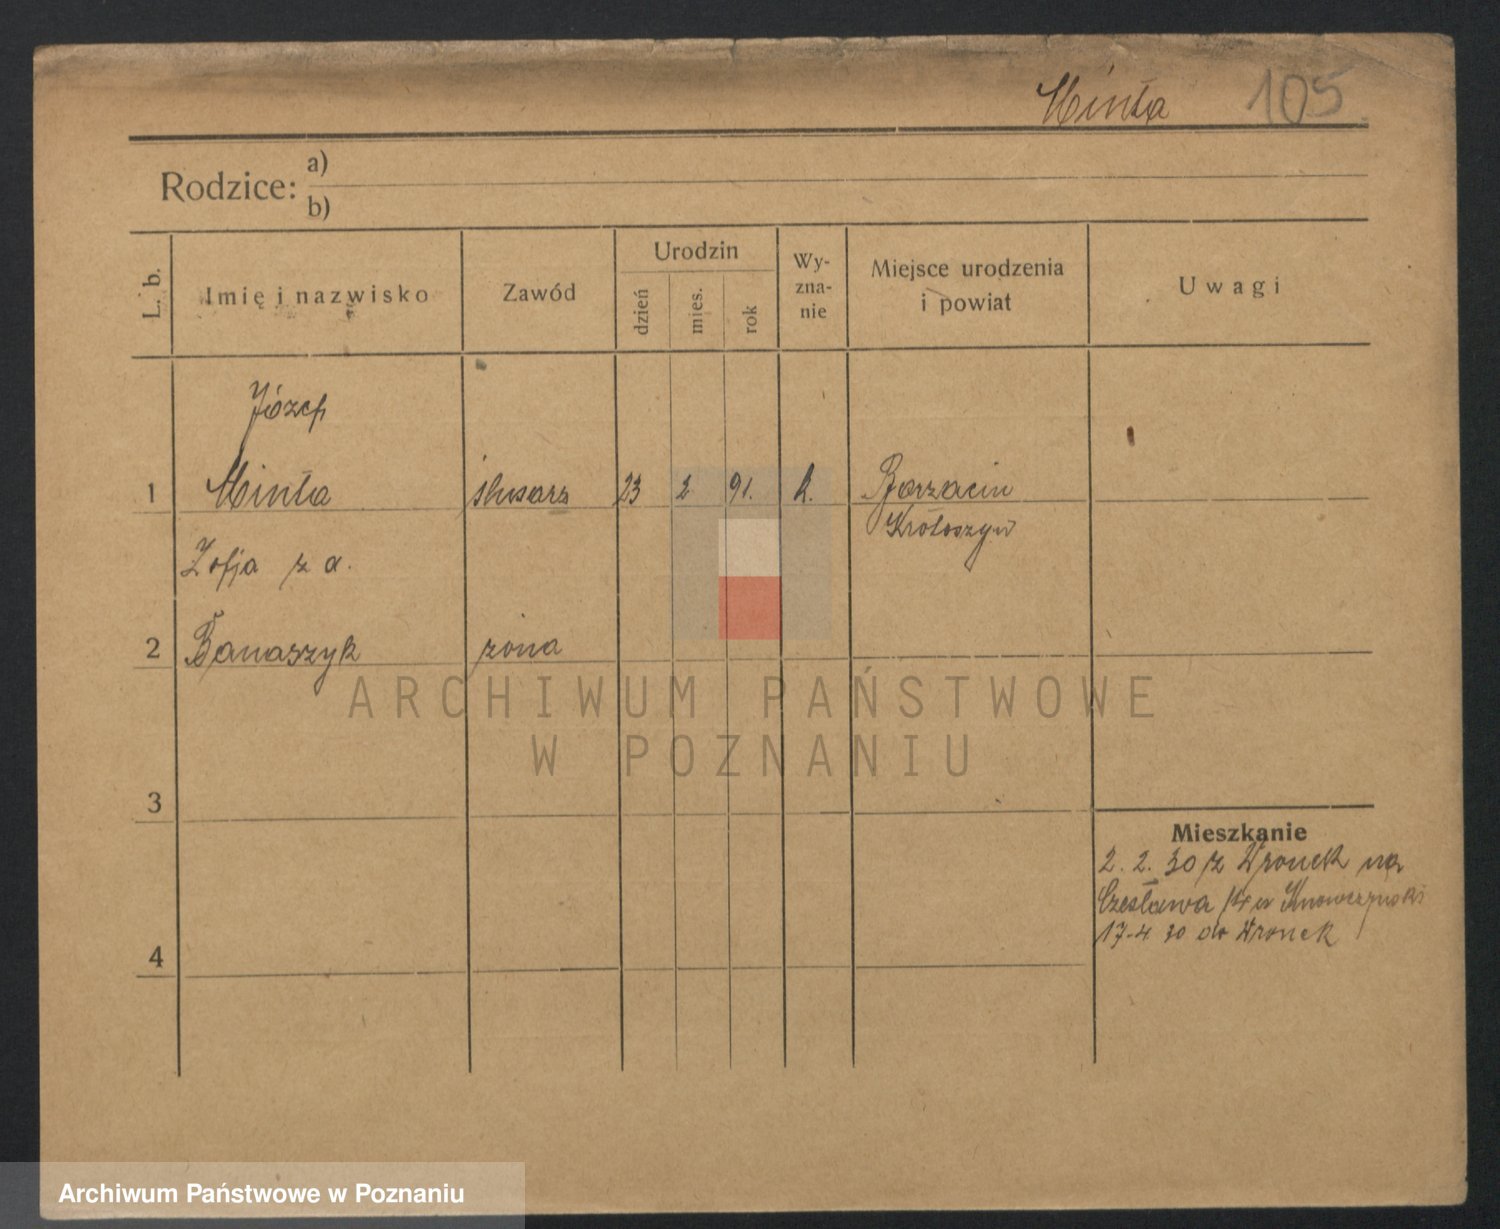 Minta 105
Rodzice: a)
b)
L. b.
Imię i nazwisko
Zawód
Urodzin
dzień
mies.
rok
Wy-
zna-
nie
Miejsce urodzenia
i powiat
Uwagi
Józef
1 Minta ślusarz 23 2 91. k. Borzacin
Krotoszyn
Zofja z d.
2 Banaszyk żona
3
4
Mieszkanie
2. 2. 30 z Wronek na
Czesława 14 u
17-4 30 do Wronek
ARCHIWUM PAŃSTWOWE
W POZNANIU
Archiwum Państwowe w Poznaniu